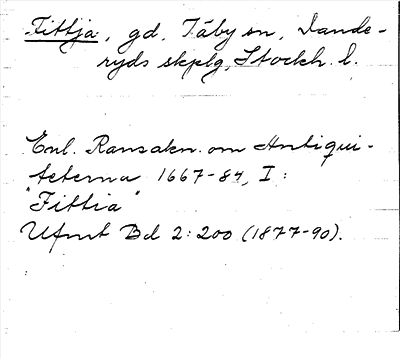 Fittja, gd, Täby sn, Dande-
ryds skplg, Stockh. l.
Enl. Ransakn. om Antiqui-
teterna 1667-84, I:
"Fittia"
Ufmt Bd 2:200 (1877-90).